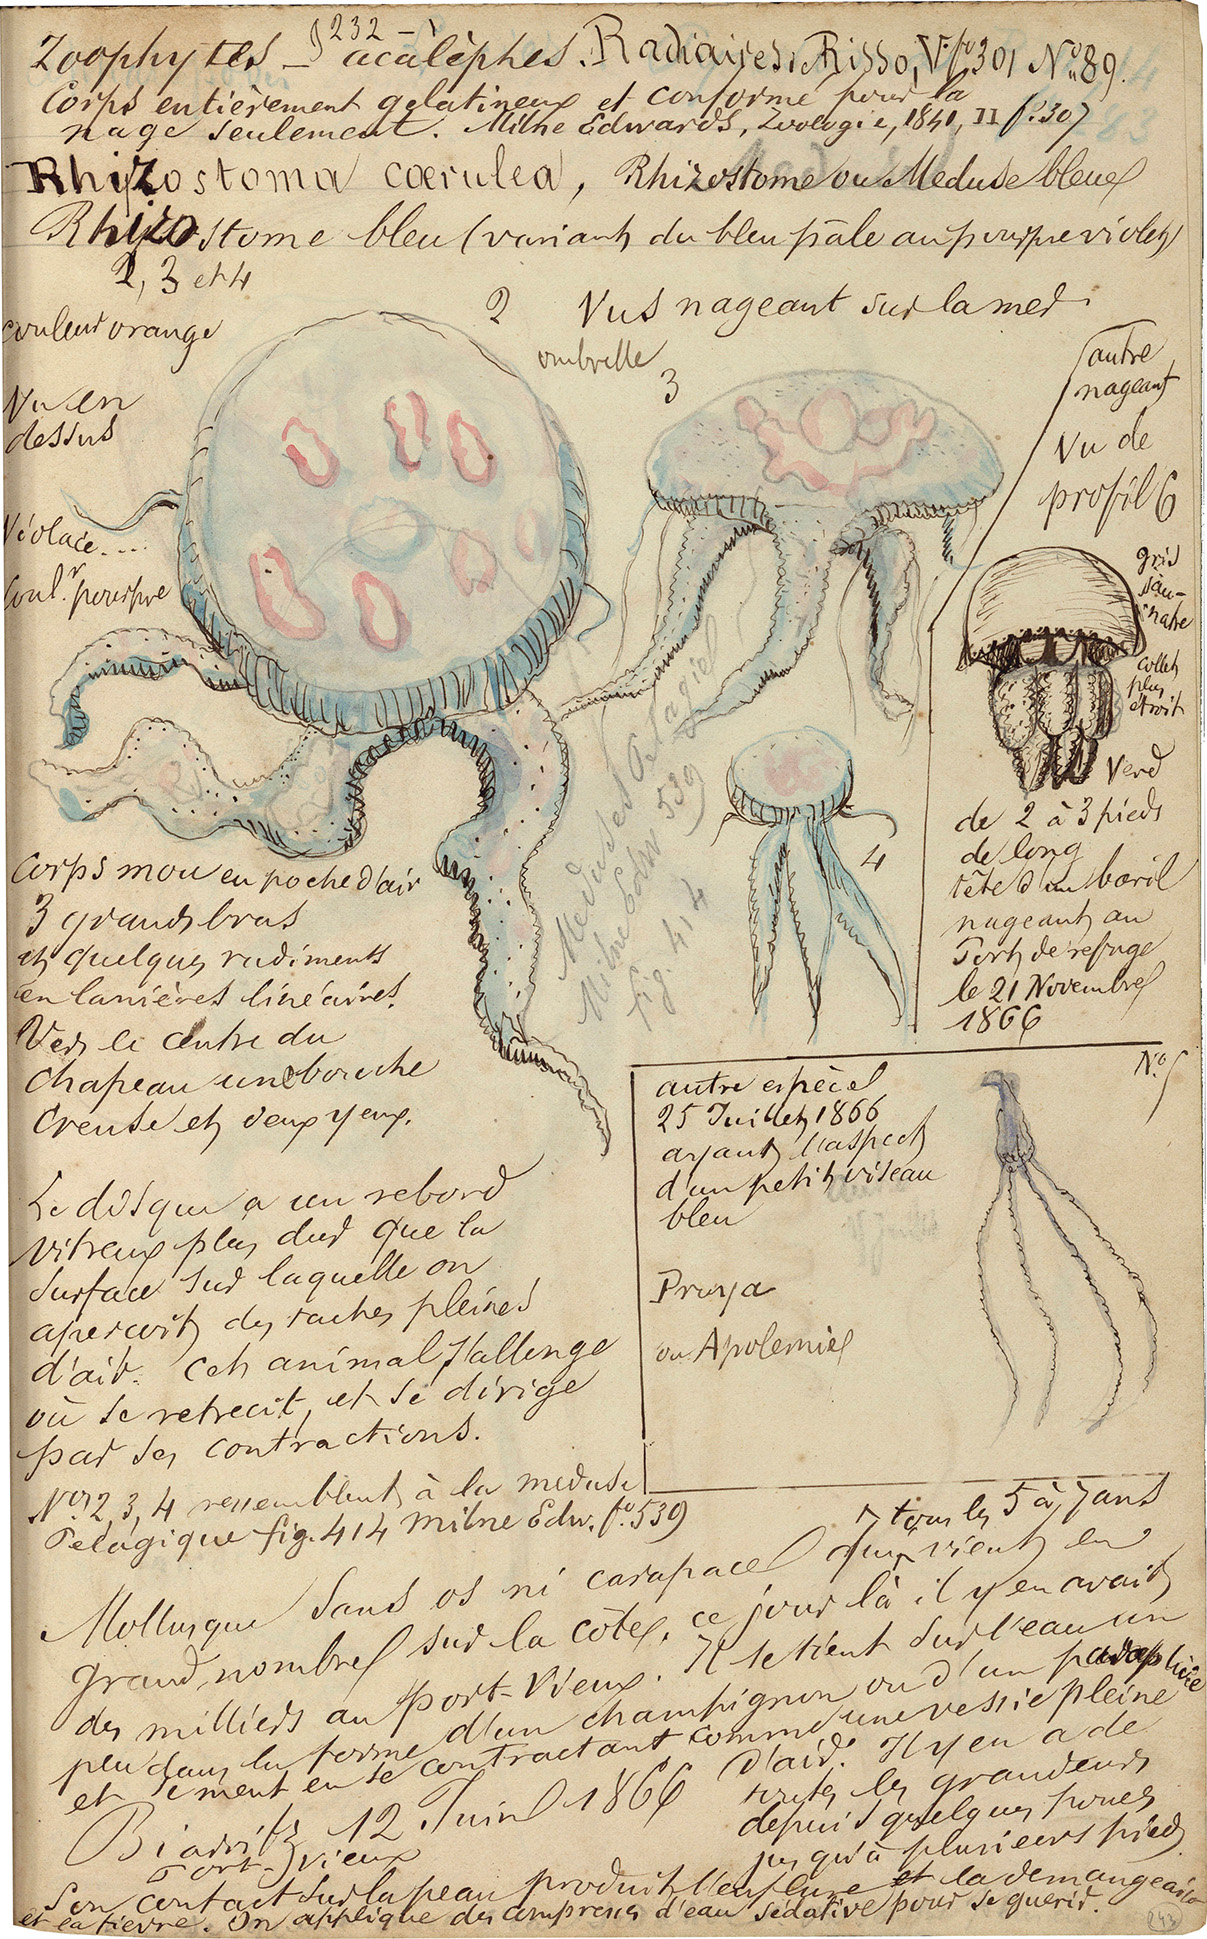 232
Zoophytes _ acalèphes. Radiaires. Risso, V. fo. 301 No. 89.
Corps entièrement gelatineux et conformé pour la
nage seulement. Milne Edwards, Zoologie, 1841, II fo. 307
Rhizostoma cœrulea, Rhizostome ou Meduse bleue
Rhizostome bleu (variant du bleu pâle au pourpre violet)
2, 3 et 4
2 Vus nageant sur la mer
couleur orange
ombrelle
3
Vu en
dessus
Violace....
Coulr. pourpre
autre
nageant
Vu de
profil 6
gris
jau-
natre
collet
plus
etroit
Verd
de 2 à 3 pieds
de long
tête d'un baril
nageant au
Port de refuge
le 21 Novembre
1866
4
Meduse Pelagie
Milne Edw 539
fig. 414
Corps mou en poche d'air
3 grands bras
et quelques rudiments
en lanières linéaires.
Vers le centre du
chapeau une bouche
creuse et deux yeux.
Le disque a un rebord
vitreux plus dur que la
surface sur laquelle on
aperçoit des taches pleines
d'air. Cet animal s'allonge
ou se retrecit, et se dirige
par ses contractions.
Nos. 2, 3, 4 ressemblent à la meduse
Pelagique fig. 414 Milne Edw. fo. 539
No. 5
autre espèce
25 Juillet 1866
ayant l'aspect
d'un petit oiseau
bleu
Praya
ou Apolemie
tous les 5 à 7 ans
Mollusque sans os ni carapace qui vient en
grand nombre sur la côte, ce jour là il y en avait
des milliers au port-Vieux. Il se tient sur l'eau un
peu dans la forme d'un champignon ou d'un parapluie
et se ment en se contractant comme une vessie pleine
d'air. Il y en a de
toutes les grandeurs
depuis quelques pouces
jusqu'à plusieurs pieds.
Biarritz 12 Juin 1866
Port-vieux
Son contact sur la peau produit l'enflure et la demangeaison
et la fievre. On applique des compresses d'eau sedative pour se guerir.
243